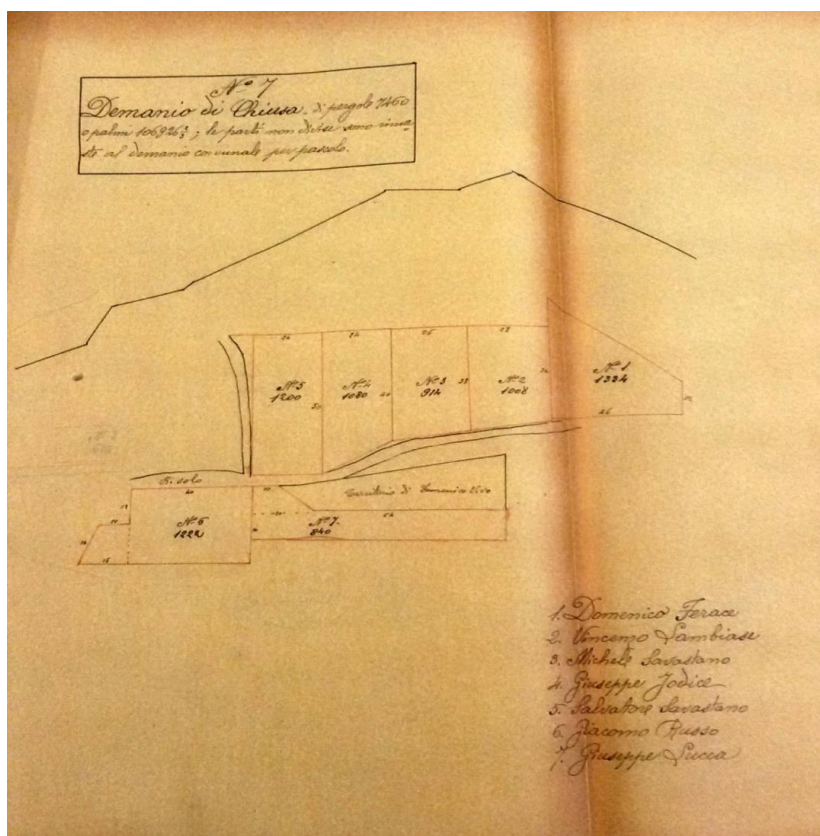 Nº 7
Demanio di Chiusa di pergole 7460
o palmi 106926 ; le parti non divise sono
al demanio comunale per pascolo.
Nº 5
1200
Nº 4
1080
Nº 3
914
Nº 2
1008
Nº 1
1334
24
24
25
23
50
33
26
40
Territorio di
Nº 6
1222
Nº 7.
840
54
15
1. Domenico Ferace
2. Vincenzo Lambiase
3. Michele Savastano
4. Giuseppe Jodice
5. Salvatore Savastano
6. Giacomo Russo
7. Giuseppe Lucia